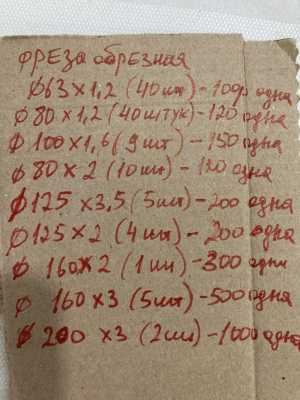 ФРЕЗА обрезная
Ø63×1,2 (40шт) - 100р одна
Ø80×1,2 (40штук) - 120 одна
Ø100×1,6 (9шт) - 150 одна
Ø80×2 (10шт) - 120 одна
Ø125×3,5 (5шт) - 200 одна
Ø125×2 (4шт) - 200 одна
Ø160×2 (1шт) - 300 одна
Ø160×3 (5шт) - 500 одна
Ø200×3 (2шт) - 1000 одна